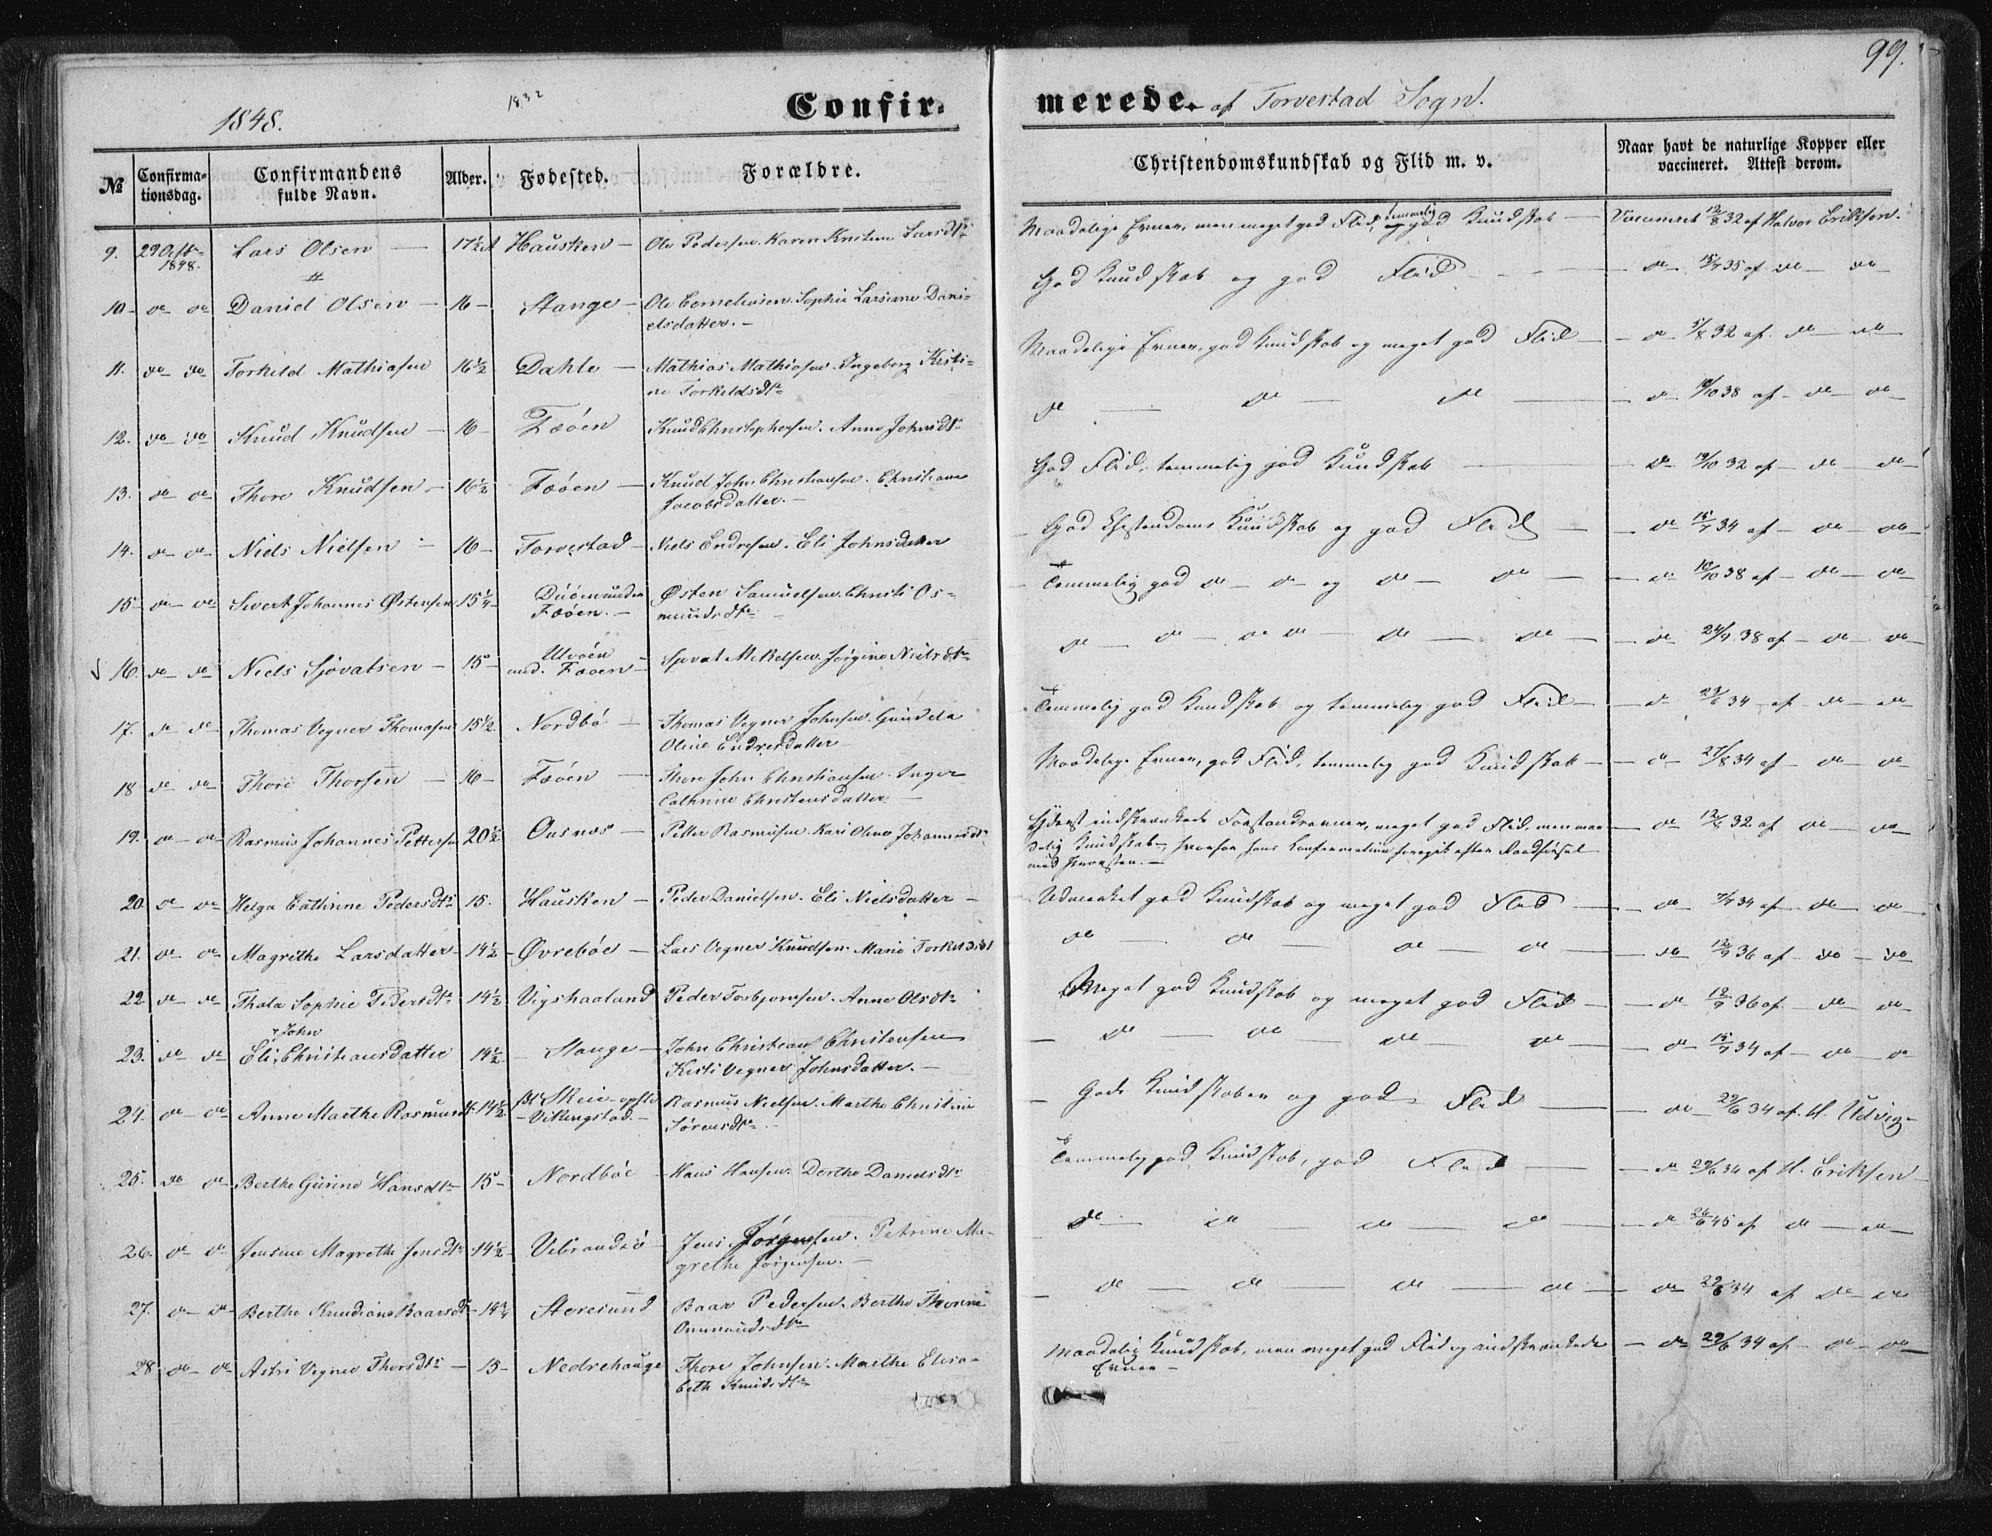 99.
1848.
1832
Confir-
merede. af Torvestad Sogn.
№
Confirma-
tionsdag.
Confirmandens
fulde Navn.
Alder.
Fødested.
Forældre.
Christendomskundskab og Flid m. v.
Naar havt de naturlige Kopper eller
vaccineret. Attest derom.
9. 29 Octb. 1848. Lars Olsen — 17½ Hausken — Ole Pedersen. Karen Kristine Larsdtr
Maadelige Evner, men meget god Flid, temmelig god Kundskab — Vaccineret 12/8 32 af Halvor Eriksen.
10 — do do Daniel Olsen — 16 — Stange — Ole Corneliusen. Sophie Larsine Dani-
elsdatter. —
God Kundskab og god Flid — do 15/7 35 af do — do
11. do do Torkild Mathiasen 16½ Dahle — Mathias Mathiasen. Ingeborg Kristi-
ne Torkildsdtr
Maadelige Evner, god Kundskab og meget god Flid — do 5/8 32 af do — do
12. do do Knud Knudsen — 16 — Fæøen Knud Christophersen. Anne Johnsdtr
do — do — do — do 10/10 38 af — do — do
13. do do Thore Knudsen — 16½ Fæøen — Knud John Christiansen. Christiane
Jacobsdatter. —
God Flid, temmelig god Kundskab — do 19/10 32 af — do — do
14. do do Niels Nielsen — 16 — Torvestad — Niels Endresen. Eli Johnsdatter
God Christendoms Kundskab og god Flid — do 15/7 34 af — do — do
15 — do do Sivert Johannes Østensen 15¼
Fæøen. — Østen Samuelsen. Christi Os-
mundsdtr —
Temmelig god do — do — og do — do — do 10/10 38 af — do — do
16. do do Niels Sjovatsen — 15 — Utvøen
und. Fæøen — Sjovat Mikelsen. Jørgine Nielsdtr
do — do — do do — do — do — do 24/9 38 af — do — do
17. do do Thomas Vegner Thomasen 15½ Nordbø — Thomas Vegner Johnsen. Gundela
Oline Endresdatter —
Temmelig god Kundskab og temmelig god Flid — do 29/6 34 — af — do — do
18 do do Thore Thorsen — 16 — Fæøen — Thore John Christiansen. Inger
Cathrine Christensdatter —
Maadelige Evner, god Flid, temmelig god Kundskab — do 27/8 34 af — do — do
19. do — do Rasmus Johannes Pettersen 20½ Osnes — Petter Rasmusen. Kari Oline Johannesdtr
Yderst indskrænkede Forstandsevner, meget god Flid, men maa-
delig Kundskab, hvorfor hans Confirmation foregik efter Raadførsel
med Provsten. — do 12/8 32 af do — do
20. do — do Helga Cathrine Pedersdtr 15. Hausken — Peder Danielsen. Eli Nielsdatter —
Udmærket god Kundskab og meget god Flid — do — 7/7 34 af — do — do
21. do do Magrethe Larsdatter 14½ Øvrebøe — Lars Vegner Knudsen. Marie Torkildsdt
do — do — do — do — do 12/9 36 af — do — do
22 do do Thala Sophie Pedersdtr 14½ Vigshaaland Peder Torbjørnsen. Anne Olsdtr
Meget god Kundskab og meget god Flid — do — 12/9 36 af — do — do
23. do do Eli John Christiansdatter 14½ — Stange — John Christian Christensen
Kisti Vegner Johnsdatter. —
— do — do — do — do — do — 15/7 34 af — do — do
24. do — do Anne Marthe Rasmusd 14½ Pl. Skeie
Vikingstad. Rasmus Nielsen. Marthe Christine
Sørensdtr —
Gode Kundskaber og god Flid — do — 29/6 34 af H. Udvig —
25. do do Berthe Gurine Hansdtr — 15 — Nordbøe — Hans Hansen. Dorthe Danielsdtr
Temmelig god Kundskab, god Flid — do 29/6 34 af H. Eriksen —
26. do do Jensine Magrethe Jensdtr 14½ Vibrandsø — Jens Jørgensen. Petrine Ma-
grethe Jørgensen. —
do — do — do — do — do 26/6 45 af do — do
27. do — do Berthe Knudiane Baarsdtr — 14¾ Storesund Baar Pedersen. Berthe Thorine
Ommundsdtr
— do — do — do — do — do 29/6 34 af do — do
28 do do Astri Vegner Thorsdtr — 15 — Nedrehauge Thore Johnsen. Marthe Elisa-
beth Knudsdtr
Maadelig Kundskab, men meget god Flid og indskrænkede
Evner — do — 29/6 34 af — do — do